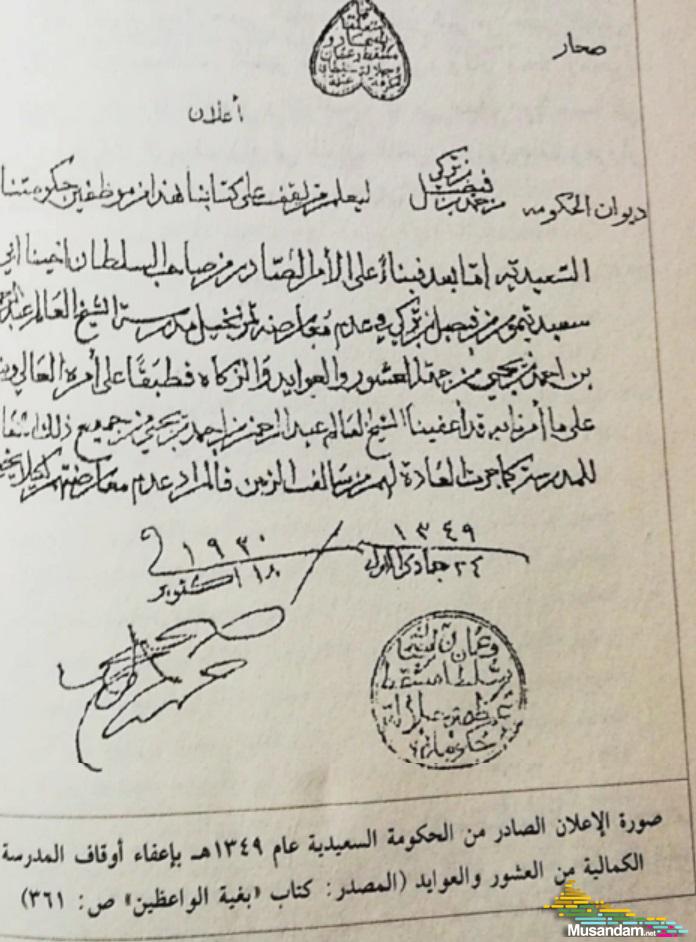 صحار
أعلان
ديوان الحكومه من حمد بن فيصل بن تركي ليعلم من يقف على كتابنا هذا من موظفين حكومتنا
السعيديه امّا بعد فبناءً على الأمر الصّادر من صاحب السلطان اخينا
سعيد تيمور بن فيصل بن تركي في عدم معارضة نخيل مدرسة الشيخ العالم
بن احمد بن يحيى من جهة العشور والعوايد والزكاه فطبقاً على أمره العالي
على ما أمرنا به قد أعفينا الشيخ العالم عبد الرحمن بن احمد بن يحيى من جميع ذلك
للمدرسة كما جرت العادة لهم من سالف الزمن فالمراد عدم معارضتهم
١٣٤٩ ١٩٣٠
٢٤ جمادى الاول ١٨ اكتوبر
صورة الإعلان الصادر من الحكومة السعيدية عام ١٣٤٩هـ بإعفاء أوقاف المدرسة
الكمالية من العشور والعوايد (المصدر: كتاب «بغية الواعظين» ص: ٣٦١)
Musandam.net